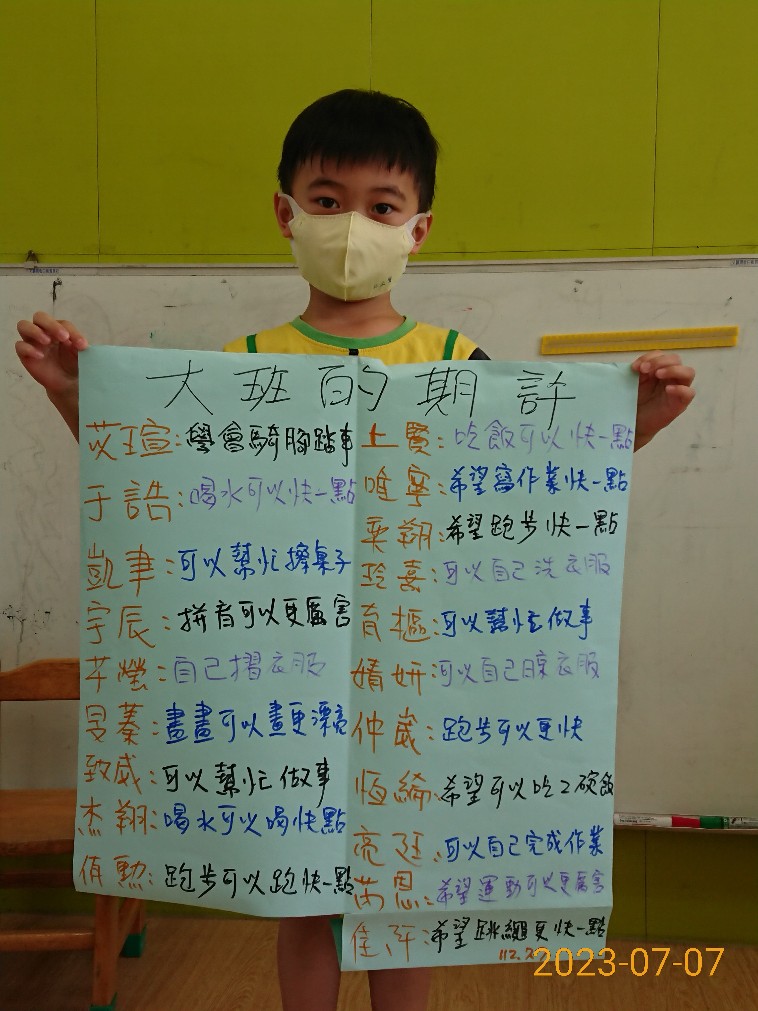 大班的期許
苡瑄:學會騎腳踏車
于誥:喝水可以快一點
凱聿:可以幫忙擦桌子
宇辰:拼音可以更厲害
芊瑩:自己摺衣服
旻蓁:畫畫可以畫更漂亮
致威:可以幫忙做事
杰翔:喝水可以喝快點
侑勳:跑步可以跑快一點
上賢:吃飯可以快一點
唯寧:希望寫作業快一點
奕翔:希望跑步快一點
玹熹:可以自己洗衣服
育樞:可以幫忙做事
婧妍:可以自己晾衣服
仲崴:跑步可以更快
恆綸:希望可以吃2碗飯
亮廷:可以自己完成作業
芮恩:希望運動可以更厲害
佳阡:希望跳繩更快一點
112.
2023-07-07